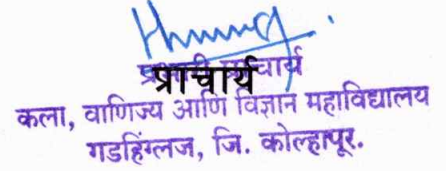 प्राचार्य
कला, वाणिज्य आणि विज्ञान महाविद्यालय
गडहिंग्लज, जि. कोल्हापूर.